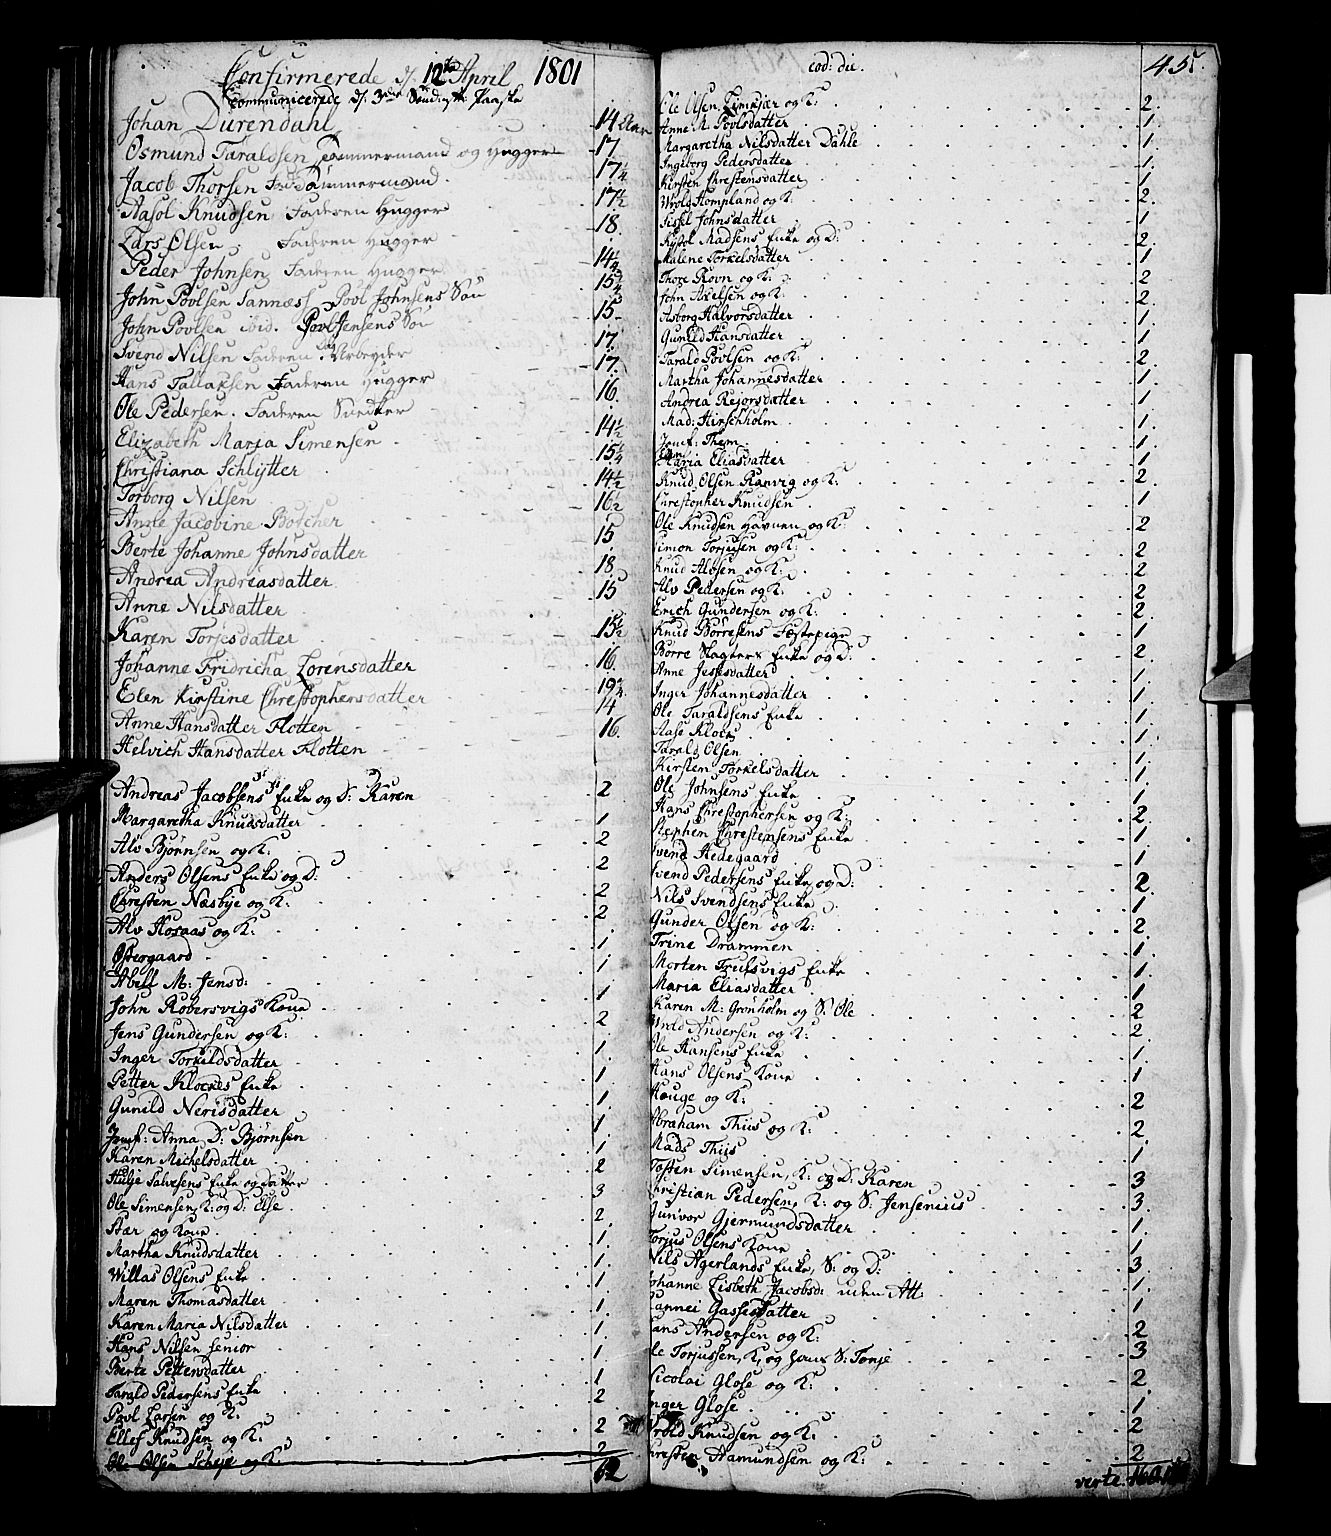 Confirmerede d. 12te April 1801
Communicerede d. 3die Søndag Paaske
Johan Durendahl 14 Aar
Osmund Taraldsen Tømmermand og Hugger 17
Jacob Thorsen Tømmermand 17 1/4
Aasol Knudsen Faderen Hugger 17 1/2
Lars Olsen Faderen Hugger 18.
Peder Johnsen Faderen Hugger 14 1/4
John Povlsen Sannæss Povl Johnsens Søn 15 3/4
John Povlsen ibid. Povl Jensens Søn 15
Svend Nilsen Faderen Arbeyder 17
Hans Tallaksen Faderen Hugger 17.
Ole Pedersen. Faderen Snedker 16.
Elizabeth Maria Simensen 14 1/2
Christiana Schlytter 15 1/4
Torborg Nilsen 14 1/2
Anne Jacobine Bøtcher 16 1/2
Berte Johanne Johnsdatter 15
Andrea Andreasdatter 18
Anne Nilsdatter 15
Karen Torjesdatter 15 1/2
Johanne Fridricha Lorensdatter 16.
Elen Kirstine Christophersdatter 19 3/4
Anne Hansdatter Flotten 14
Helvich Hansdatter Flotten 16.
Andreas Jacobsens Enke og D: Karen 2
Margaretha Knudsdatter 1
Alv Bjørnsen og K: 2
Anders Olsens Enke og D: 2
Chresten Næsbye og K: 2
Alv Hosaas og K: 2
Østergaard 1
Abell M: Jensd: 1
John Robersvigs Kone 1
Jens Gundersen og K: 2
Inger Torkildsdatter 1.
Petter Klockes Enke 1.
Gunild Nerisdatter 1
Jomf: Anna D: Bjørnsen 1
Karen Michelsdatter 1
Hulje Salvesens Enke og Datter 2
Ole Simensen, K: og D: Else 3
Stær og Kone 2.
Martha Knudsdatter 1.
Willas Olsens Enke 1.
Maren Thomasdatter 1
Karen Maria Nilsdatter 1.
Hans Nilsen senior 1.
Berte Pettersdatter 1
Tarald Pedersens Enke 1
Povl Larsen og K: 2
Ellef Knudsen og K: 2
Ole Olsen Scheje og K: 2
62
eod: die. 45.
Ole Olsen og K: 2
Anne M. Povlsdatter 1
Margaretha Nilsdatter Dahle 1
Ingeborg Pedersdatter 1.
Kirsten Chrestensdatter 1
Hompland og K: 2.
Sissel Johnsdatter 1
Madsens Enke og D: 2
Malene Torkelsdatter 1
Thore Ravn og K: 2
John Axelsen og K: 2
Asborg Halvorsdatter 1.
Gunild Hansdatter 1
Tarald Povlsen og K: 2
Martha Johannesdatter 1
Andrea Rejersdatter 1
Mad: Hirschholm 1
Jomf: Them 1
Maria Eliasdatter 1
Knud Olsen Ranvig og K: 2
Christopher Knudsen 1
Ole Knudsen Havnen og K: 2
Simon Torjusen og K: 2
Knud Alvsen og K: 2
Alv Pedersen og K: 2
Erich Gundersen og K: 2
Knud Børresens Fæstepige 1
Børre Slagters Enke og D: 2
Anne Jessesdatter 1
Inger Johannesdatter 1
Ole Taraldsens Enke 1
Aase Klock 1
Tarald Olsen 1
Kirsten Torkelsdatter 1
Ole Johnsens Enke 1
Hans Christophersen og K: 2
Stephen Chrestensens Enke 1
Svend Hedegaard 1
Svend Pedersens Enke og D: 2
Nils Svendsens Enke 1
Gunder Olsen og K: 2
Trine Drammen 1
Morten Trulsvigs Enke 1
Maria Eliasdatter 1
Karen M: Grønholm og S: Ole 2
Andersen og K: 2
Ole Hansens Enke 1
Hans Olsens Kone 1
Houge og K: 2
Abraham Thiis og K: 2
Mads Thiis 1
Tosten Simensen, K: og D: Karen 3
Christian Pedersen, K: og S: Jensenius 3
Gunvor Gjermundsdatter 1
Torjus Olsens Kone 1
Nils Agerlands Enke, S: og D: 3
Johanne Lisbeth Jacobsd: uden Att: 1
Gassesdatter 1
Hans Andersen og K: 2
Ole Torjussen, K: og S: Tonje 3
Nicolai Glose og K: 2
Inger Glose 1
Knudsen og K: 2
Chresten Aamundsen og K: 2
verte.